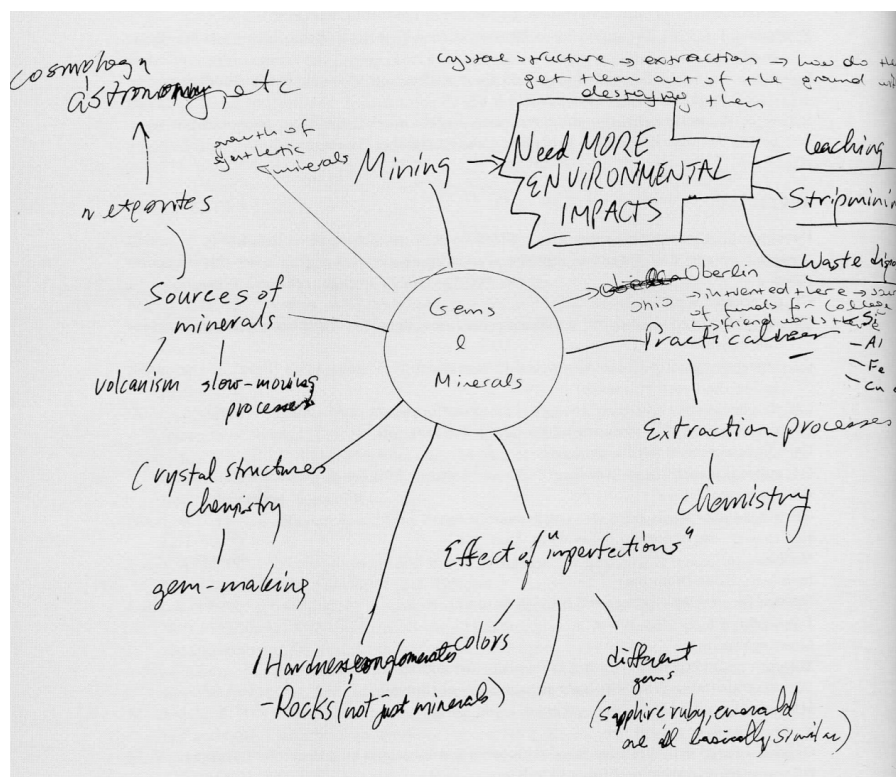 cosmology
astronomy, etc
crystal structure → extraction → how do the
get them out of the ground wit
destroying them
growth of
synthetic
minerals
Mining
Need MORE
ENVIRONMENTAL
IMPACTS
Leaching
Stripminin
Waste disp
meteorites
Sources of
minerals
volcanism
slow-moving
processes
Gems
&
Minerals
Oberlin
Ohio → invented there →
of funds for College
friend works there
Practical
- Al
- Fe
Cu
Extraction processes
chemistry
Crystal structures
chemistry
gem-making
Effect of "imperfections"
Hardness, conglomerates
- Rocks (not just minerals)
colors
different
gems
(sapphire, ruby, emerald
are all basically similar)